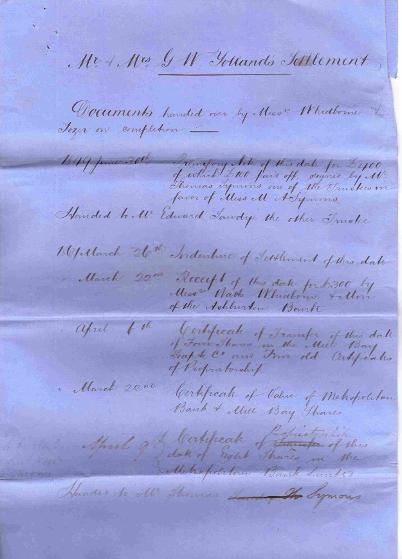 Mr & Mrs G W Yollands Settlement
Documents handed over by Messrs Whidborne &
Tozer on completion —
June 30th Promissory Note of this date for £400
of which £100 paid off, signed by Mr
Thomas Symons one of the Trustees in
favor of Miss M A Symons
Handed to Mr Edward the other Trustee
March 26th Indenture of Settlement of this date
" March 22nd Receipt of this date for £300 by
Messrs Watts Whidborne &
of the Ashburton Bank
" April 6th Certificate of Transfer of this date
of Four Shares in the Mill Bay
Soap & Co and Four old Certificates
of Proprietorship
" March 22nd Certificate of Value of Metropolitan
Bank & Mill Bay Shares
April 9th Certificate of of this
date of Eight Shares in the
Metropolitan Bank Limited
Handed to Mr Thomas Symons